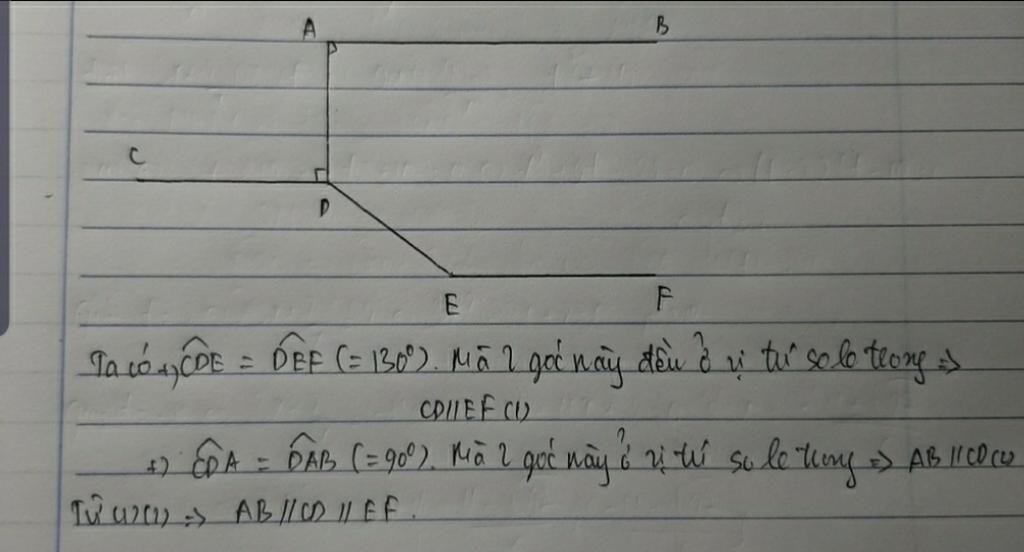 A B
C
D
E F
Ta có +) CDE = DEF (= 130°). Mà 2 góc này đều ở vị trí so le trong =>
CD // EF (1)
+) CDA = DAB (= 90°). Mà 2 góc này ở vị trí so le trong => AB // CD (2)
Từ (1) (2) => AB // CD // EF.